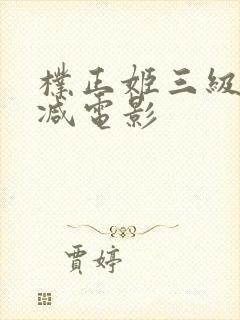 樸正姬三級
减電影
賈婷